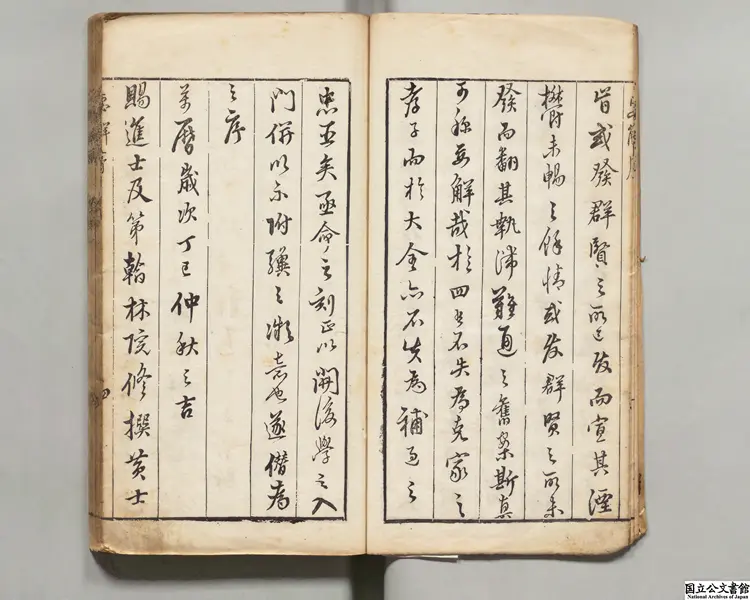 旨或發群賢之所已發而宣其湮
欝未暢之餘情或發群賢之所未
發而翻其執滯難通之舊案斯真
可稱解哉於四書不失為克家之
孝子而於大全亦不失為補過之
忠臣矣亟命之刻正以開後學之入
門併以示附驥之微意也遂僭為
之序
萬曆歲次丁巳仲秋之吉
賜進士及第翰林院修撰黃士
国立公文書館
National Archives of Japan